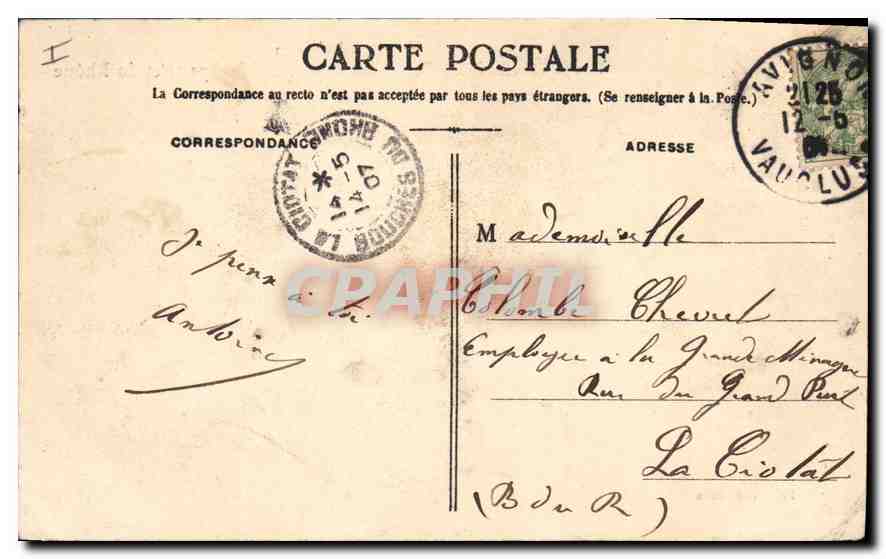 I
CARTE POSTALE
La Correspondance au recto n'est pas acceptée par tous les pays étrangers. (Se renseigner à la Poste.)
CORRESPONDANCE
ADRESSE
AVIGNON
2125
12 -5
VAUCLUSE
LA CIOTAT BOUCHES DU RHONE
14 -5
07
Je pense
à toi
Antoine
Mademoiselle
Colombe Chevret
Employée à la Grande Ménagère
Rue du Grand Puit
La Ciotat
(B du R)
CPAPHIL